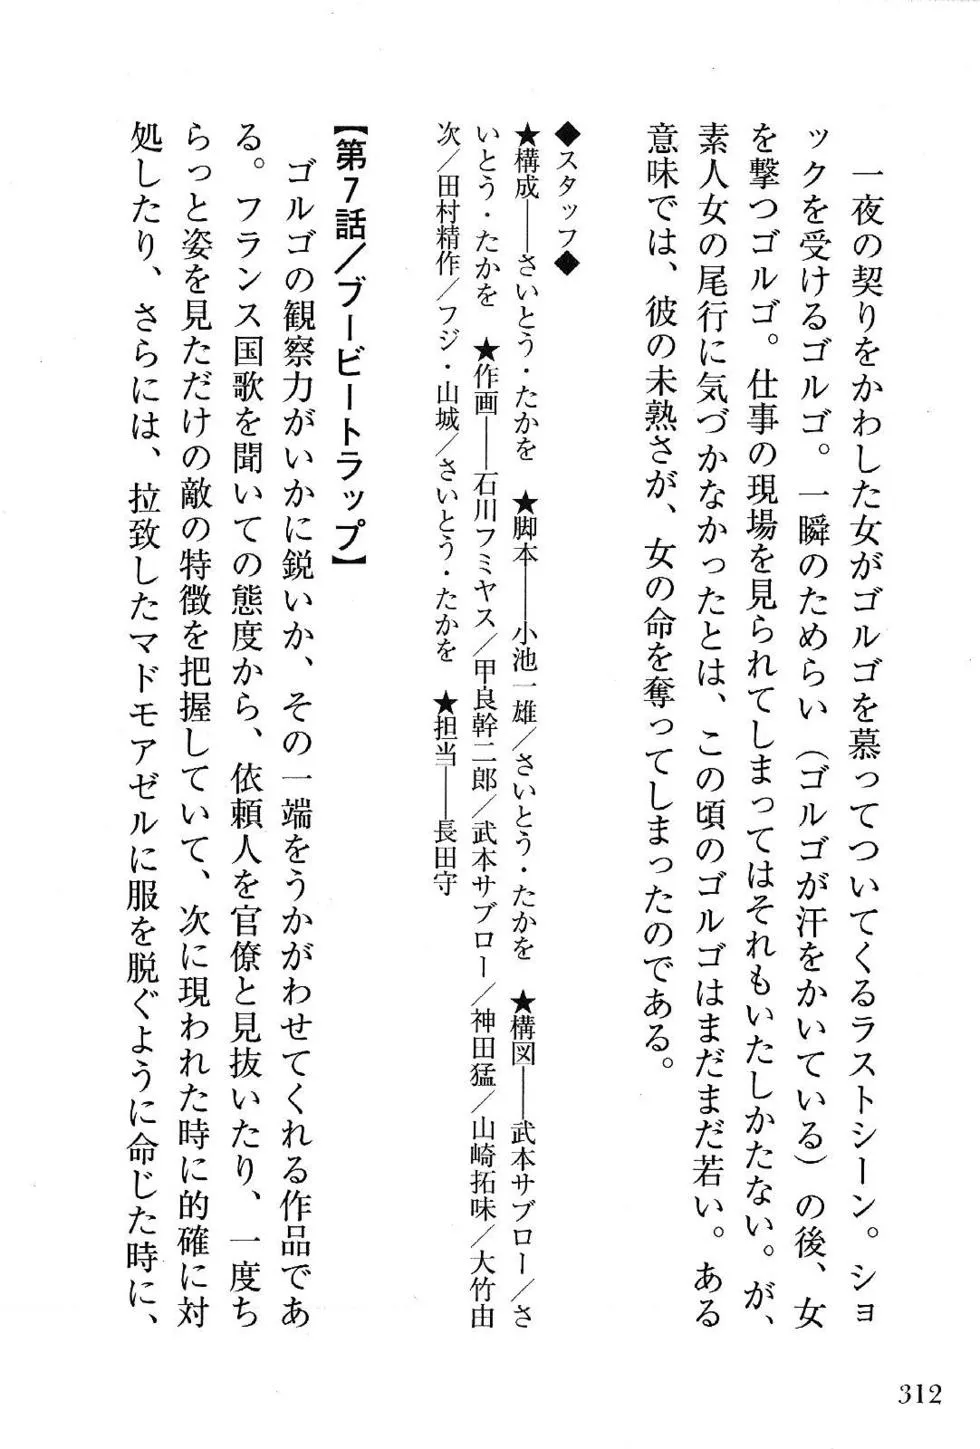 一夜の契りをかわした女がゴルゴを慕ってついてくるラストシーン。ショ
ックを受けるゴルゴ。一瞬のためらい（ゴルゴが汗をかいている）の後、女
を撃つゴルゴ。仕事の現場を見られてしまってはそれもいたしかたない。が、
素人女の尾行に気づかなかったとは、この頃のゴルゴはまだまだ若い。ある
意味では、彼の未熟さが、女の命を奪ってしまったのである。
◆スタッフ◆
★構成——さいとう・たかを　★脚本——小池一雄／さいとう・たかを　★構図——武本サブロー／さ
いとう・たかを　★作画——石川フミヤス／甲良幹二郎／武本サブロー／神田猛／山崎拓味／大竹由
次／田村精作／フジ・山城／さいとう・たかを　★担当——長田守
【第7話／ブービートラップ】
ゴルゴの観察力がいかに鋭いか、その一端をうかがわせてくれる作品であ
る。フランス国歌を聞いての態度から、依頼人を官僚と見抜いたり、一度ち
らっと姿を見ただけの敵の特徴を把握していて、次に現われた時に的確に対
処したり、さらには、拉致したマドモアゼルに服を脱ぐように命じた時に、
312